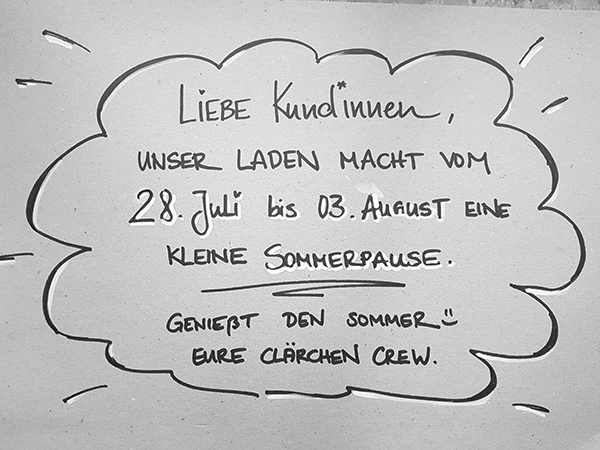 LIEBE Kund*innen,
UNSER LADEN MACHT VOM
28. Juli bis 03. AUGUST EINE
KLEINE SOMMERPAUSE.
GENIEßT DEN SOMMER ☺
EURE CLÄRCHEN CREW.